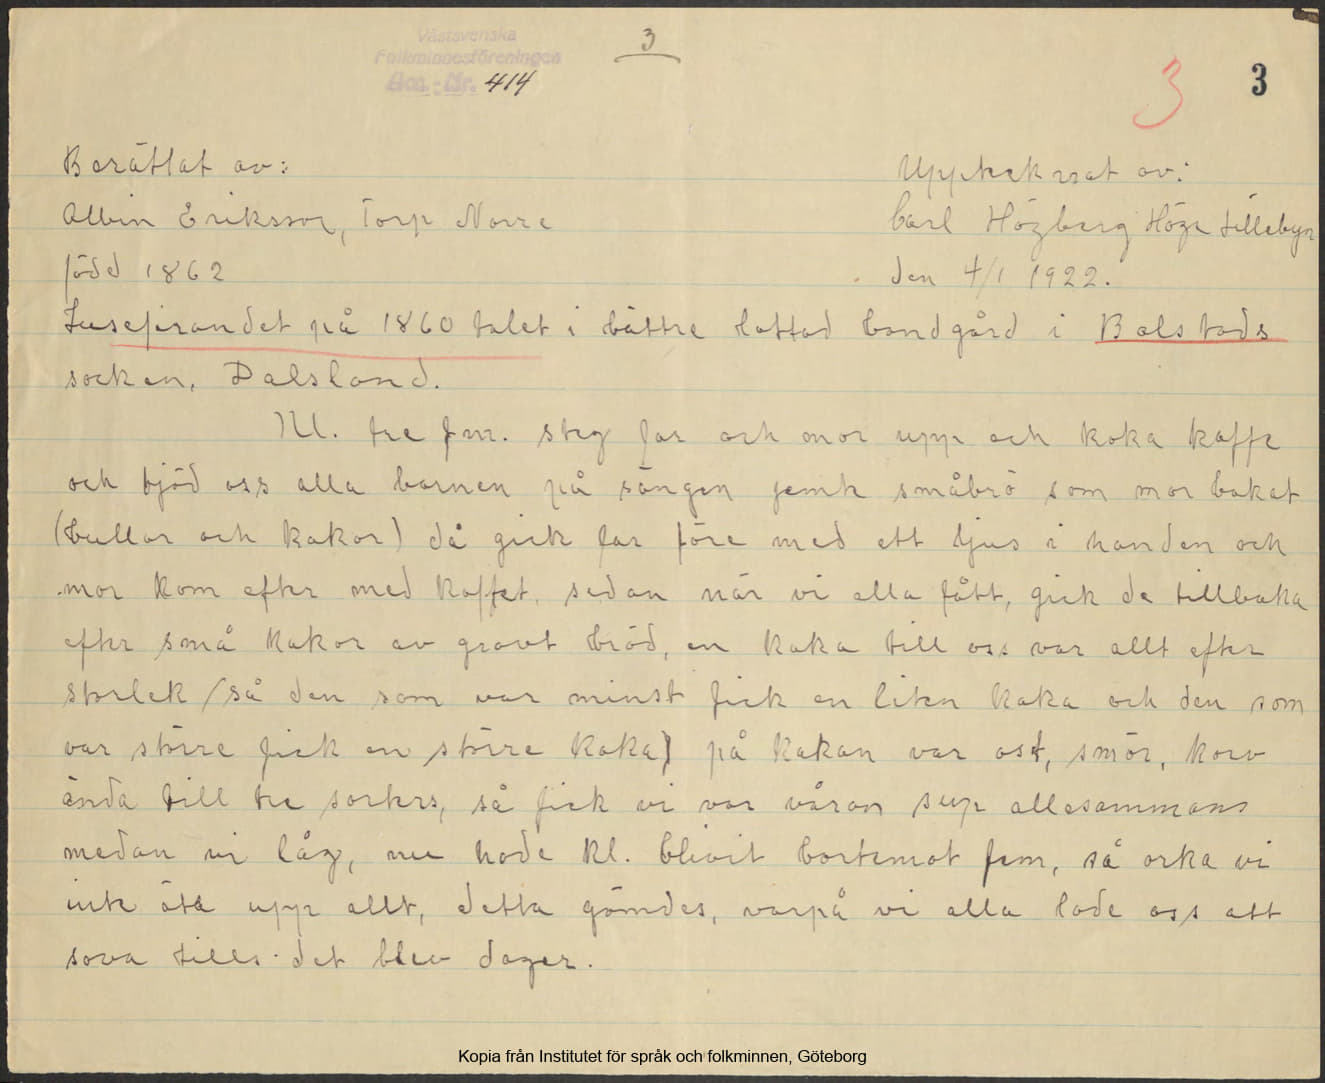 Västsvenska
Folkminnesföreningen
3
Acc.-Nr. 414
3
3
Berättat av:
Upptecknat av:
Albin Eriksson, Torp Norra
Carl Högberg Höga Tillebyn
född 1862
den 4/1 1922.
Lusefirandet på 1860 talet i bättre lottad bondgård i Bolstads
socken, Dalsland.
Kl. tre fm. steg far och mor upp och koka kaffe
och bjöd oss alla barnen på sängen jemte småbrö som mor bakat
(bullar och kakor) då gick far före med ett ljus i handen och
mor kom efter med kaffet, sedan när vi alla fått, gick de tillbaka
efter små kakor av grovt bröd, en kaka till oss var allt efter
storlek (så den som var minst fick en liten kaka och den som
var större fick en större kaka) på kakan var ost, smör, korv
ända till tre sorters, så fick vi var våran sup allesammans
medan vi låg, nu hade kl. blivit bortemot fem, så orka vi
inte äta upp allt, detta gömdes, varpå vi alla lade oss att
sova tills det blev dager.
Kopia från Institutet för språk och folkminnen, Göteborg